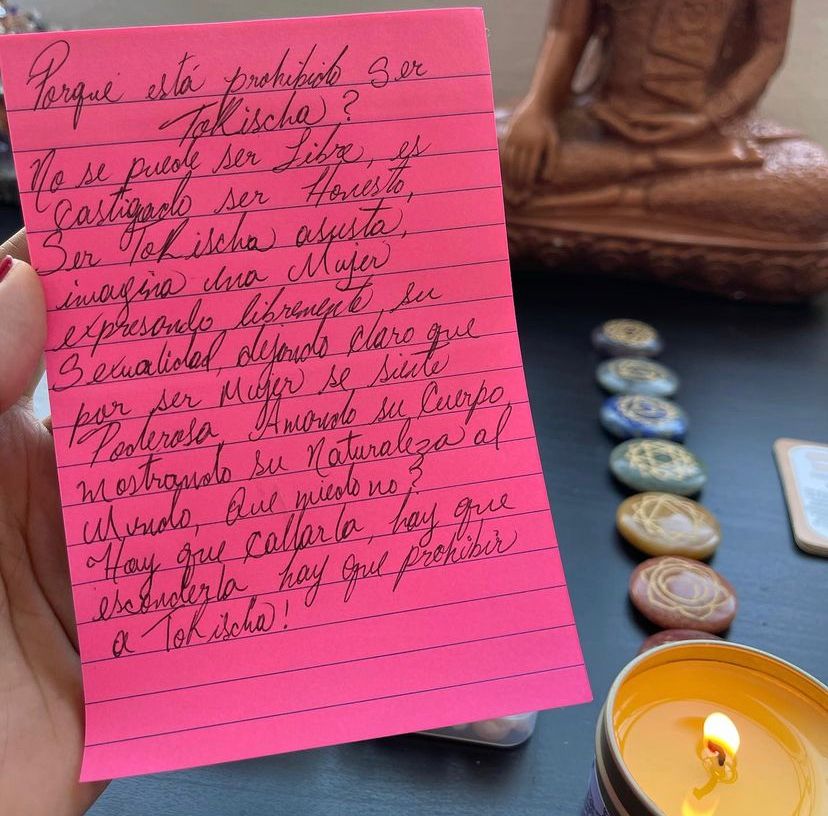 Porque está prohibido ser
Tokischa?
No se puede ser Libre, es
Castigado ser Honesto,
Ser Tokischa asusta,
imagina una Mujer
expresando libremente su
Sexualidad, dejando claro que
por ser Mujer se siente
Poderosa, Amando su Cuerpo,
mostrando su Naturaleza al
Mundo, Que miedo no?
Hay que callarla, hay que
esconderla hay que prohibir
a Tokischa!